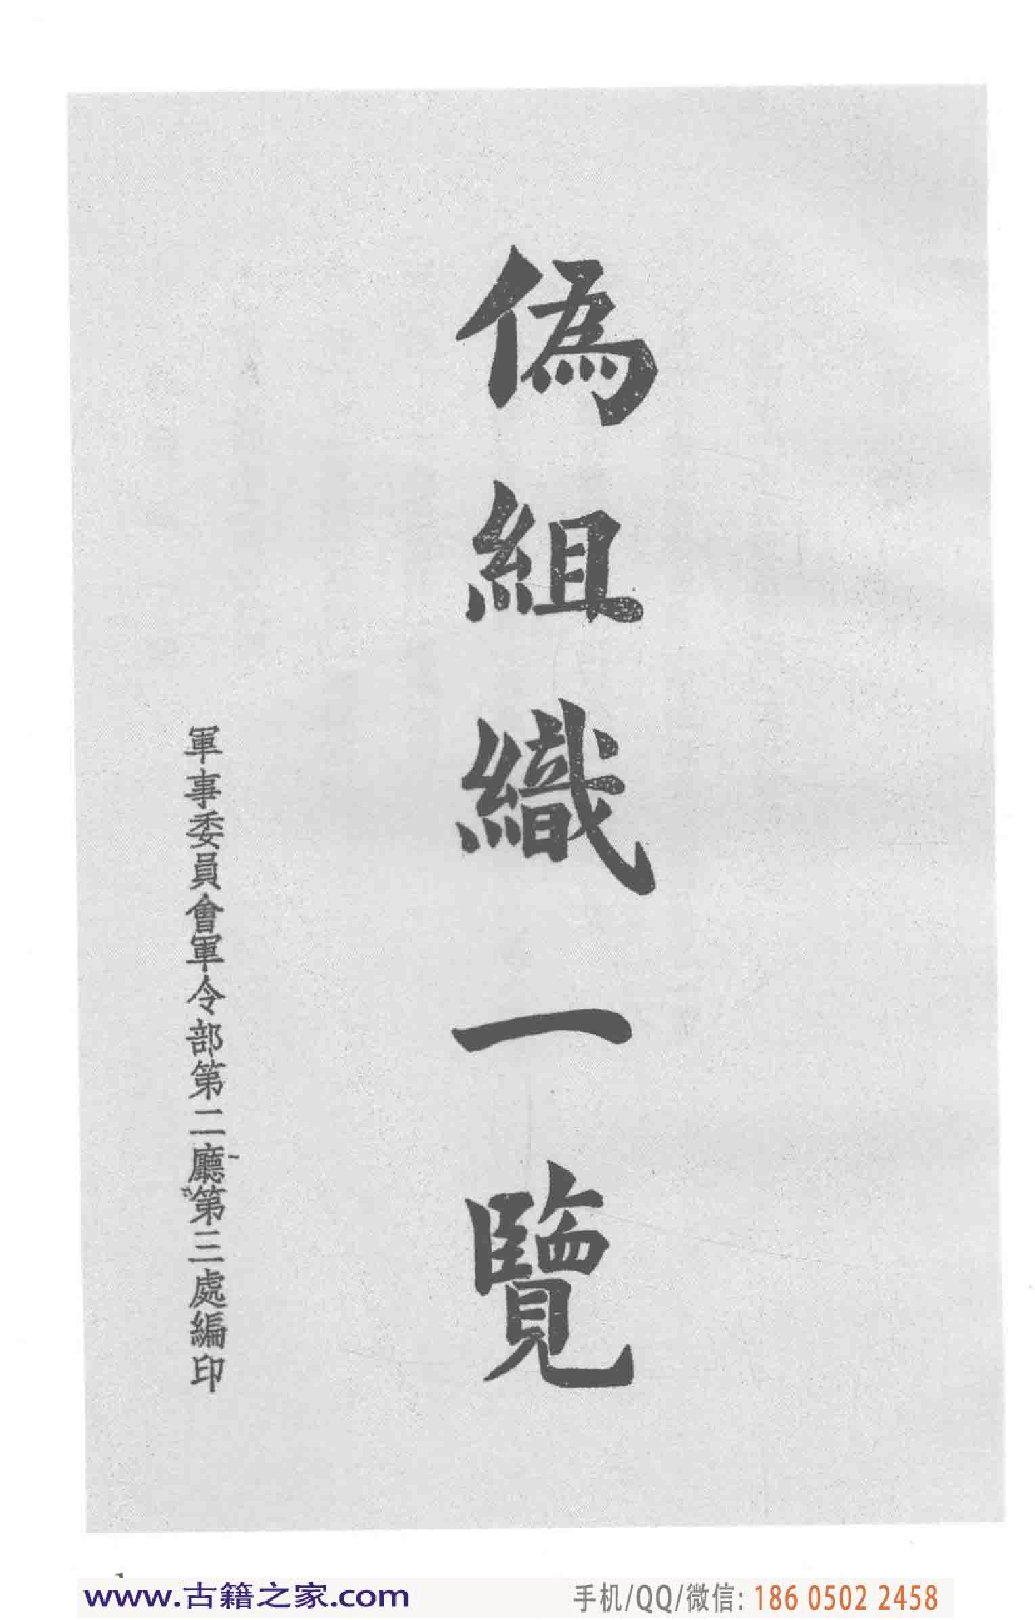 偽組織一覽
軍事委員會軍令部第二廳第三處編印
www.古籍之家.com
手机/QQ/微信: 186 0502 2458